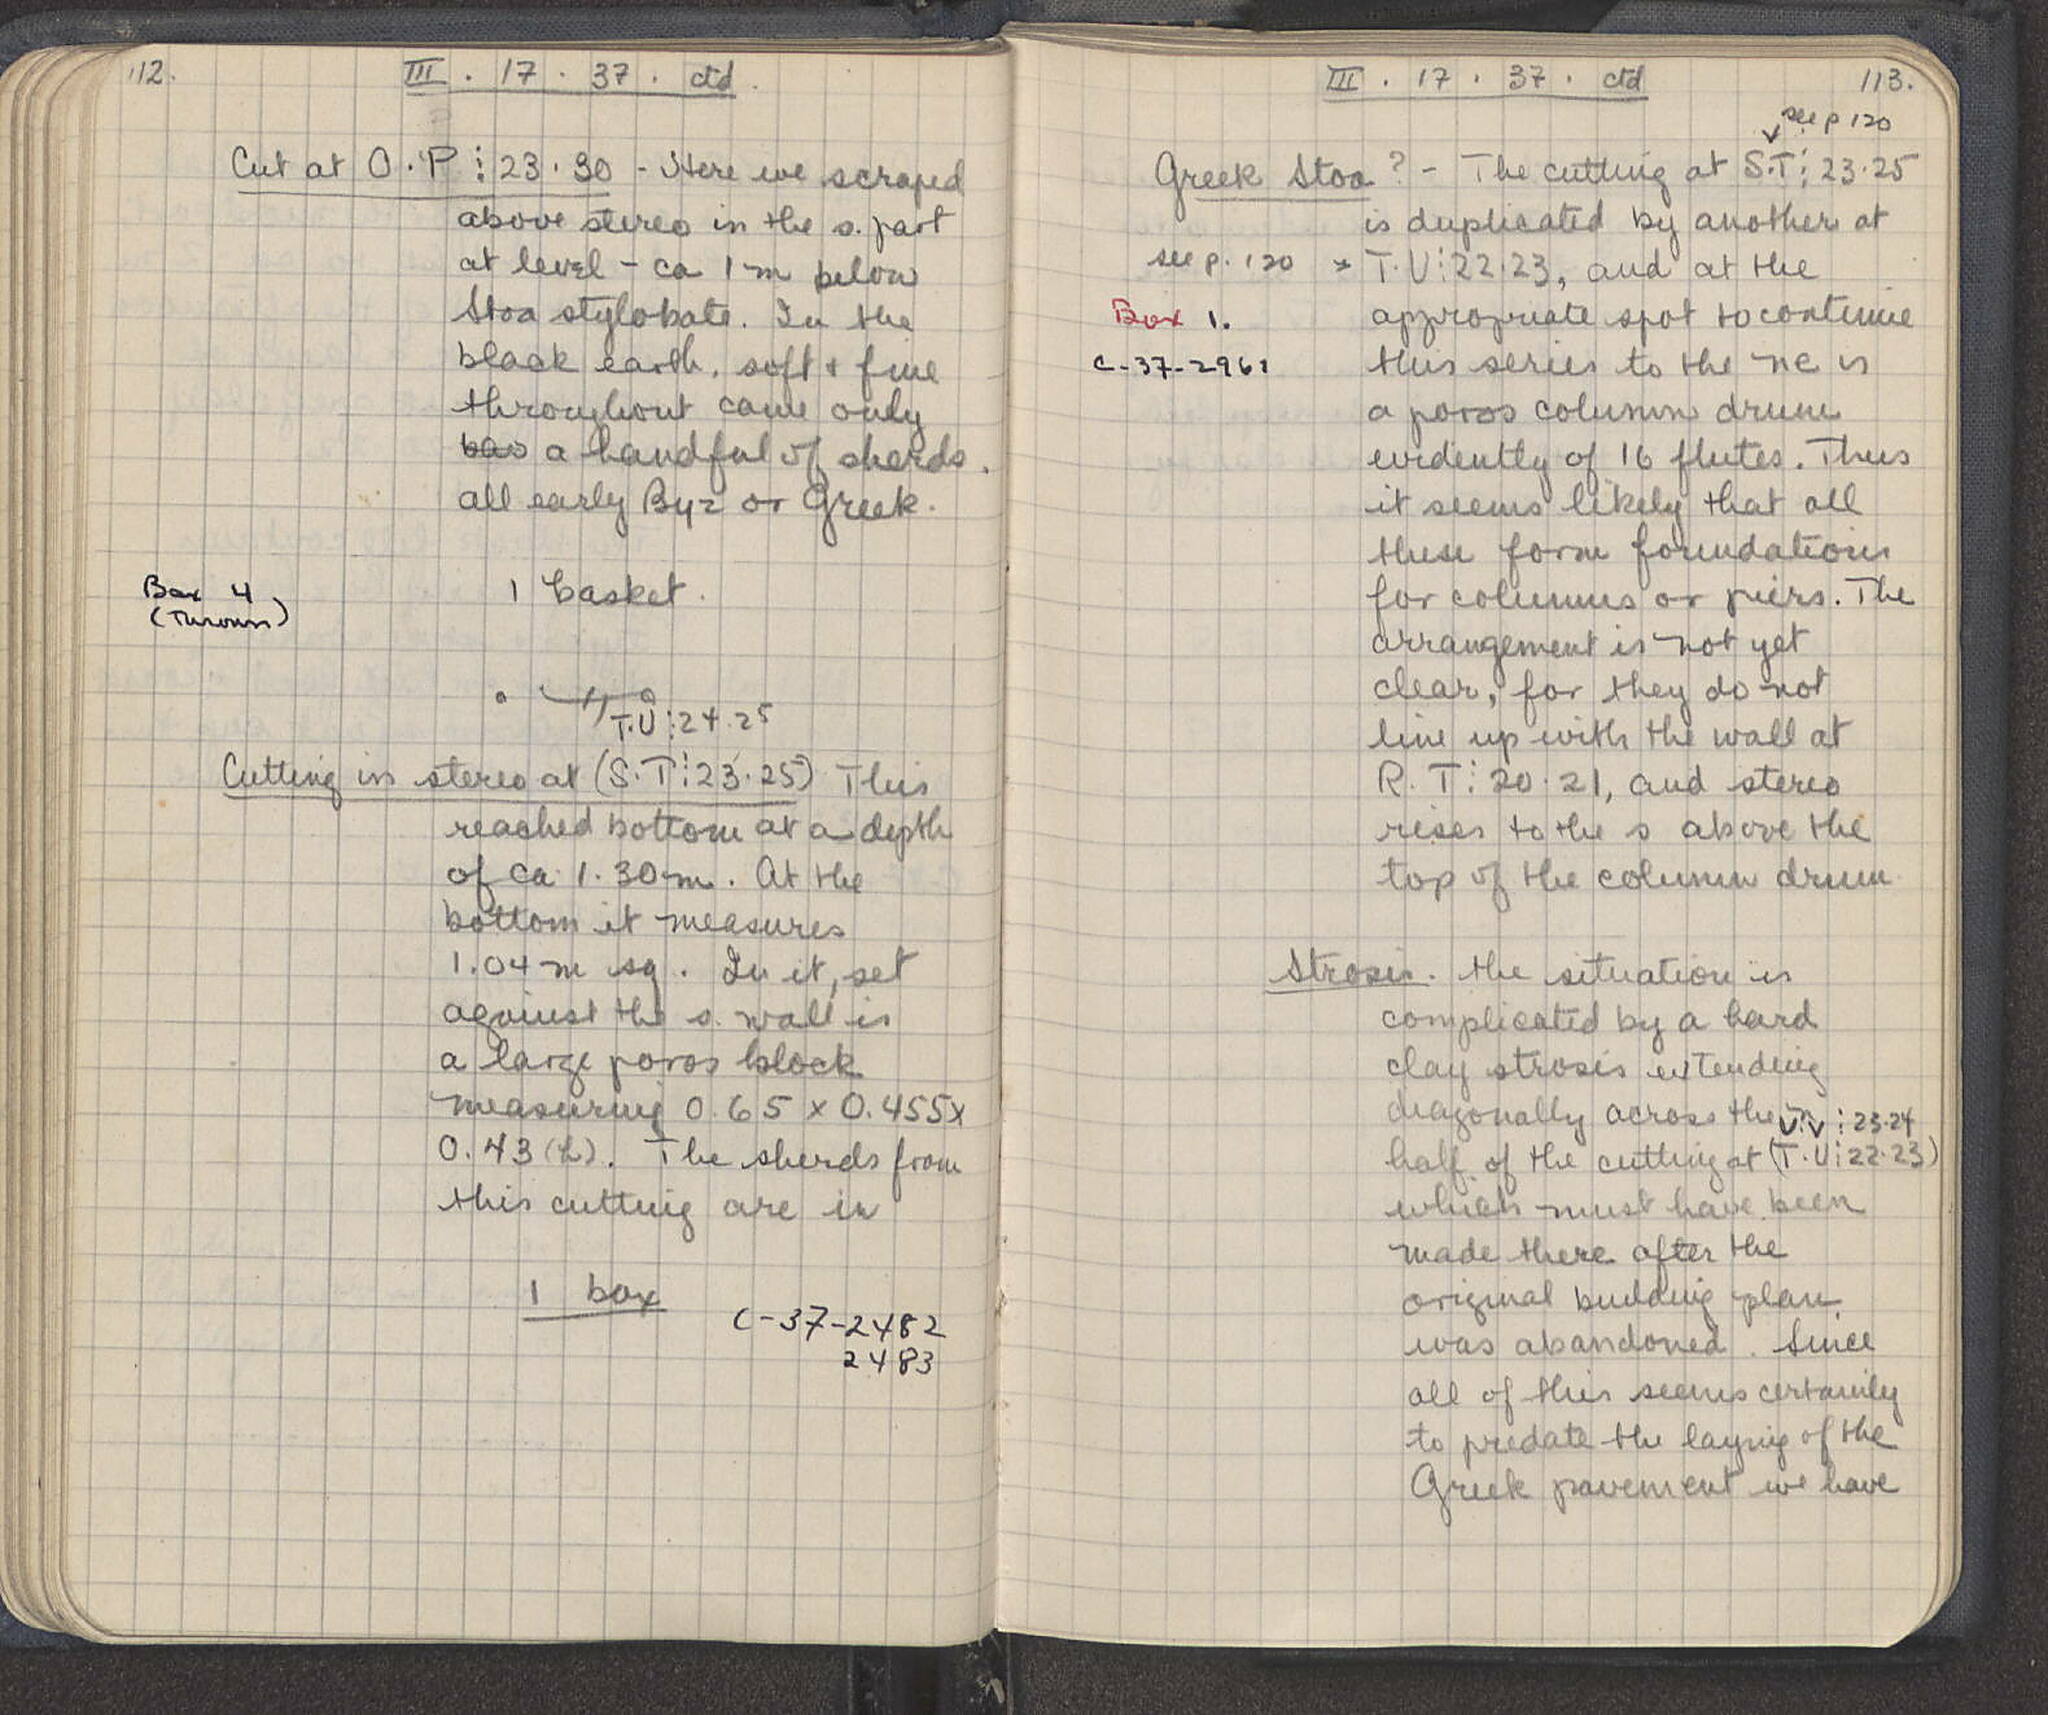 112.
III . 17 . 37 . ctd.
Cut at O.P⋮23.30 - Here we scraped
above stereo in the s. part
at level - ca 1 m below
Stoa stylobate. In the
black earth, soft + fine
throughout came only
bas a handful of sherds.
all early Byz or Greek.
Box 4
(Thrown)
1 basket.
T.U⋮24.25
Cutting in stereo at (S.T⋮23.25) This
reached bottom at a depth
of ca 1.30 m. At the
bottom it measures
1.04 m sq. In it, set
against the s. wall is
a large poros block
measuring 0.65 x 0.455 x
0.43 (h). The sherds from
this cutting are in
1 box
C-37-2482
2483
III . 17 . 37 . ctd
113.
see p 120
Greek Stoa? - The cutting at S.T⋮23.25
is duplicated by another at
see p. 120 * T.U⋮22.23, and at the
Box 1.
appropriate spot to continue
C-37-2961
this series to the ne is
a poros column drum
evidently of 16 flutes. Thus
it seems likely that all
these form foundations
for columns or piers. The
arrangement is not yet
clear, for they do not
line up with the wall at
R.T⋮20.21, and stereo
rises to the s above the
top of the column drum.
Strosis. The situation is
complicated by a hard
clay strosis extending
diagonally across the n
U.V⋮23.24
half of the cutting at (T.U⋮22.23)
which must have been
made there after the
original building plan
was abandoned. Since
all of this seems certainly
to predate the laying of the
Greek pavement we have